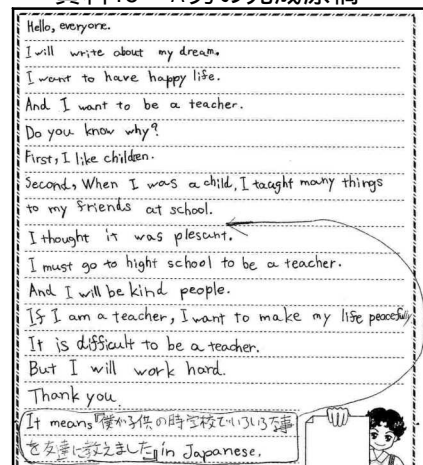 Hello, everyone.
I will write about my dream.
I want to have happy life.
And I want to be a teacher.
Do you know why?
First, I like children.
Second, When I was a child, I taught many things
to my friends at school.
I thought it was plesant.
I must go to hight school to be a teacher.
And I will be kind people.
If I am a teacher, I want to make my life peacefully
It is difficult to be a teacher.
But I will work hard.
Thank you
It means『僕が子供の時学校でいろいろな事
を友達に教えました』in Japanese.